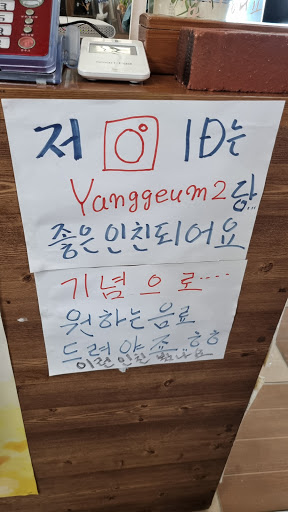 저 ID는
Yanggeum2 당..
좋은인친되어요
기념으로....
원하는음료
드려야죠 ㅎㅎ
이런인친